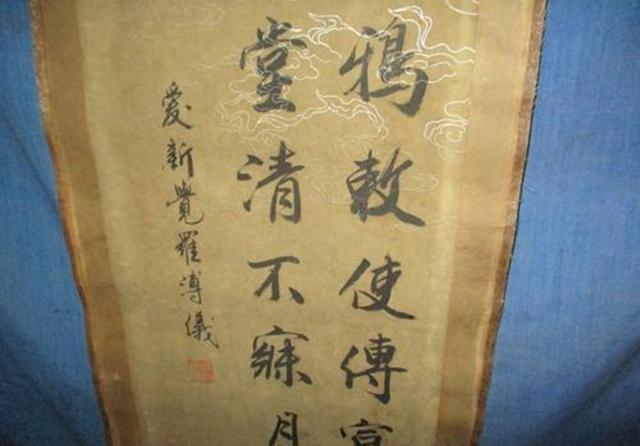 鴉敕使傳宣
堂清不寐月
愛新覺羅溥儀